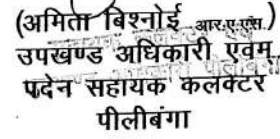 (अमिता बिश्नोई आर.ए.एस.)
उपखण्ड अधिकारी एवम्
पदेन सहायक कलेक्टर
पीलीबंगा